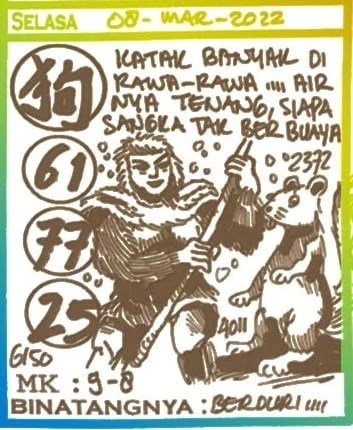 SELASA 08-MAR-2022
狗
KATAK BANYAK DI
RAWA-RAWA ,,,, AIR
NYA TENANG, SIAPA
SANGKA TAK BERBUAYA
2372
61
77
25
4011
6150
MK : 9-8
BINATANGNYA : BERDURI ,,,,